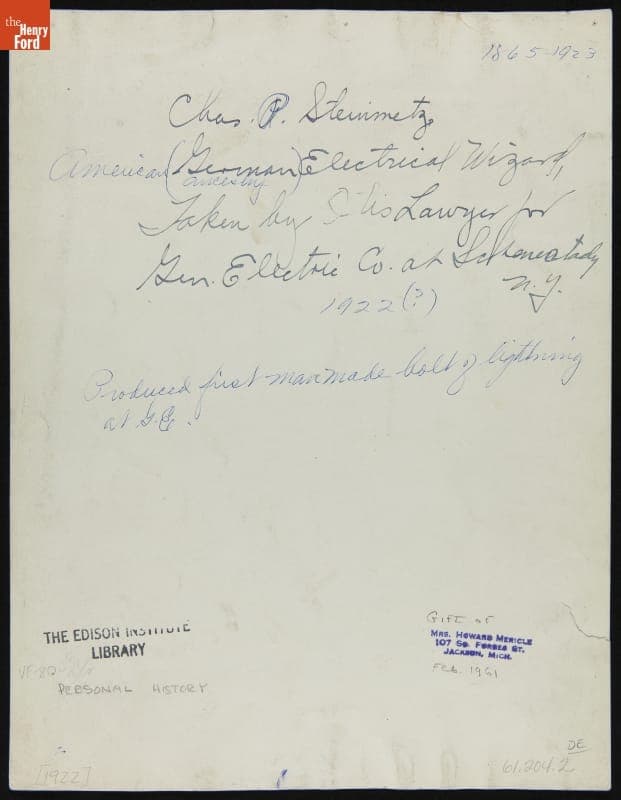 the
Henry
Ford
1865-1923
Chas. P. Steinmetz,
American (German) Electrical Wizard,
ancestry
Taken by His Lawyer for
Gen. Electric Co. at Schenectady
N.Y.
1922(?)
Produced first manmade bolt of lightning
at G.E.
THE EDISON INSTITUTE
LIBRARY
PERSONAL HISTORY
GIFT OF
MRS. HOWARD MERICLE
107 SO. FORBES ST.
JACKSON, MICH.
FEB. 1961
[1922]
DE
61.204.2